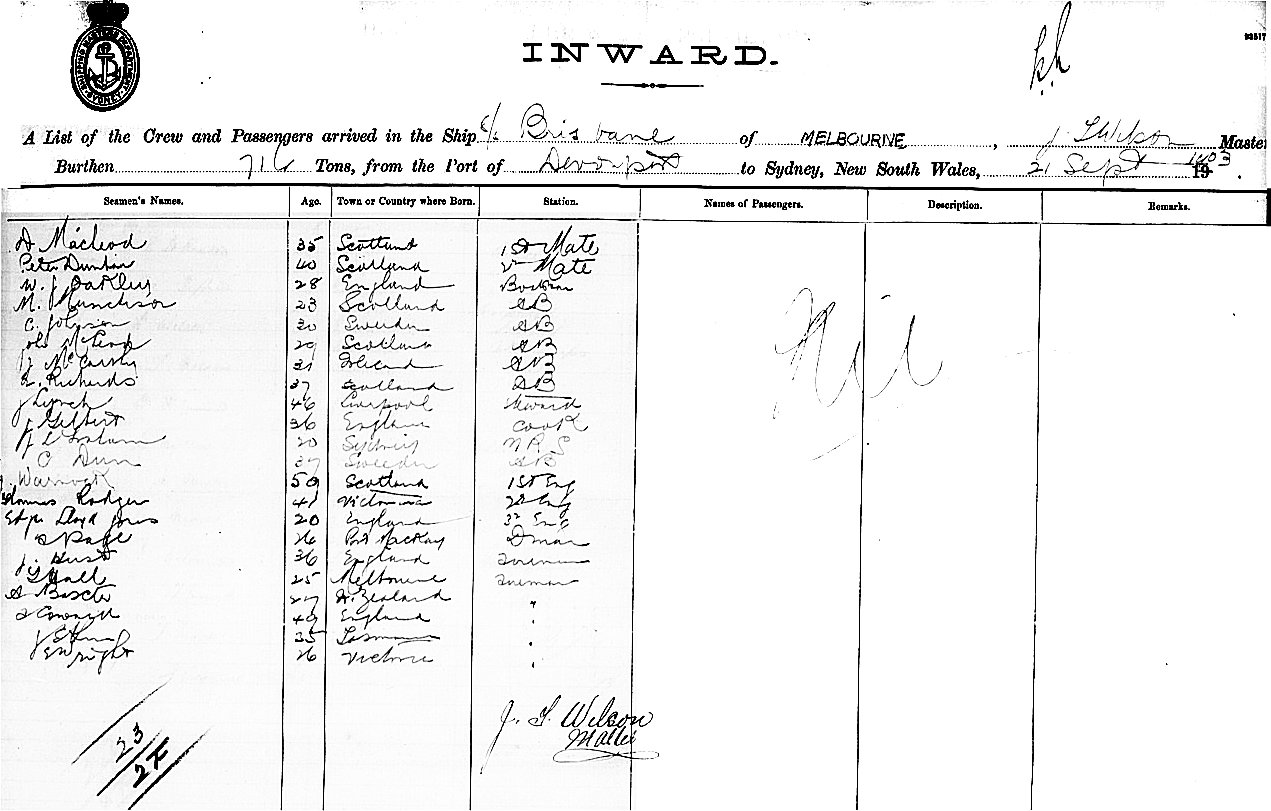 INWARD.
A List of the Crew and Passengers arrived in the Ship S/S Brisbane of MELBOURNE, J T Wilson Master
Burthen 716 Tons, from the Port of Devonport to Sydney, New South Wales, 21 Sept 1903.
Seamen's Names. Age. Town or Country where Born. Station. Names of Passengers. Description. Remarks.
D Macleod 35 Scotland 1st Mate
Peter 40 Scotland 2nd Mate
W. J Oakley 28 England
M. Hutchison 23 Scotland AB
C. 30 Sweden AB
McLeod 29 Scotland AB
McCarthy 31 Ireland AB
R. Richards 37 Scotland AB
J Lynch 46 Liverpool Steward
J Gilbert 36 England Cook
J L 20 Sydney
C Dunn 37 Sweden AB
J. Warnock 59 Scotland 1st Eng
Thomas Rodger 41 Victoria 2nd Eng
Lloyd Jones 20 England 3rd Eng
Page 26 Port MacKay Dman
J. Hurst 36 England Fireman
T Hall 25 Melbourne Fireman
A Baxter 27 N. Zealand "
49 England "
35 Tasmania "
E Wright 26 Victoria "
Nil
J. T. Wilson
Master
23